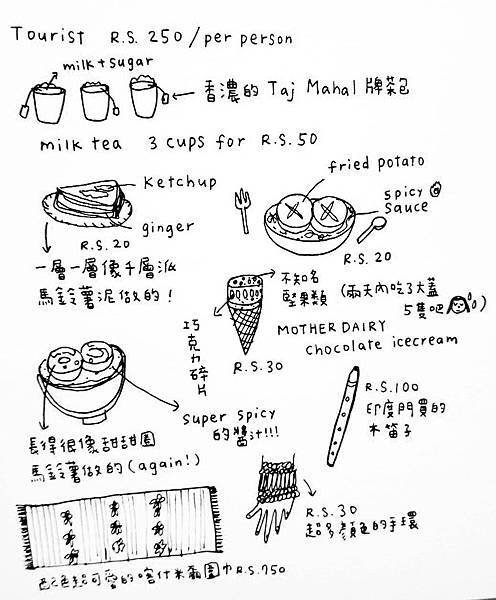 Tourist R.S. 250 / per person
milk + sugar
香濃的 Taj Mahal 牌茶包
milk tea 3 cups for R.S. 50
Ketchup
ginger
R.S. 20
一層一層像千層派
馬鈴薯泥做的!
fried potato
spicy
sauce
R.S. 20
不知名
堅果類
(兩天內吃3大盖
5隻吧)
巧克力碎片
R.S. 30
MOTHER DAIRY
chocolate icecream
super spicy
的醬汁!!!
長得很像甜甜圈
馬鈴薯做的 (again!)
R.S. 100
印度門買的
木笛子
R.S. 30
超多顏色的手環
超可愛的喀什米爾圍巾 R.S. 750